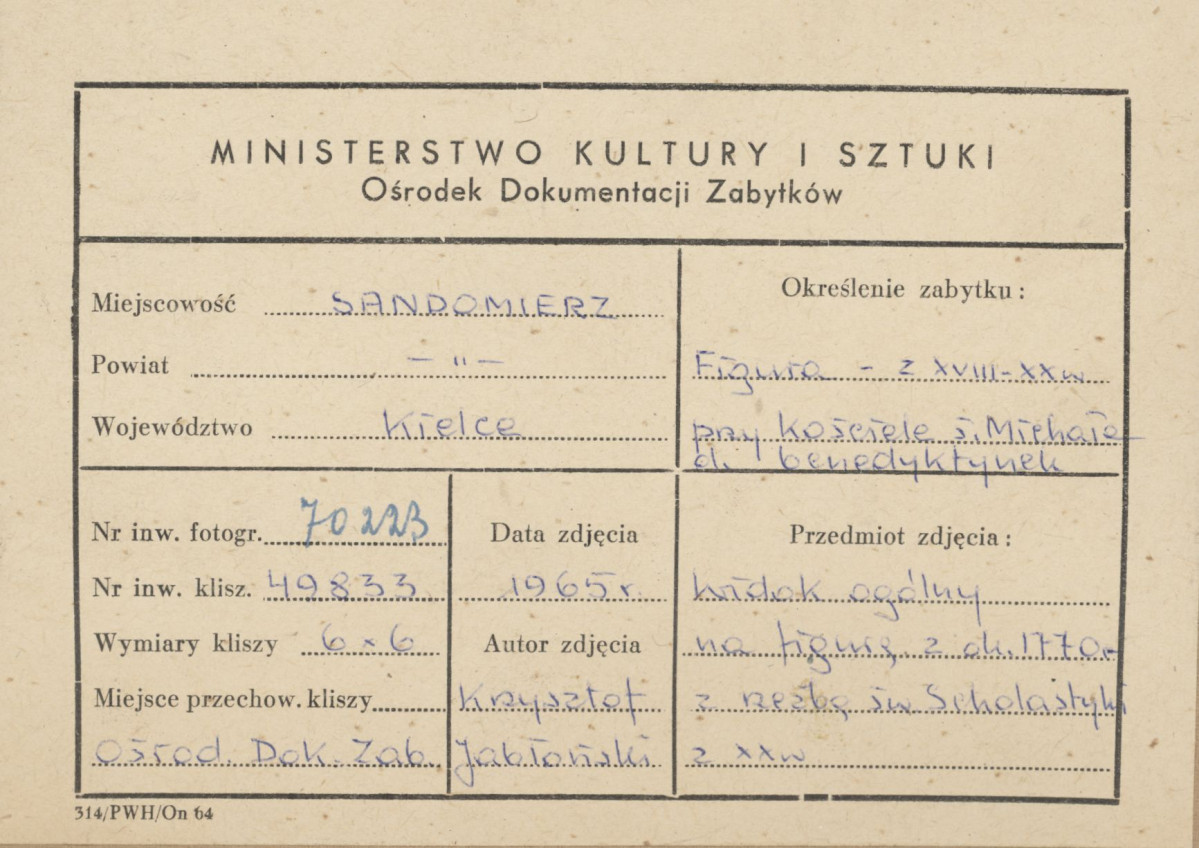 MINISTERSTWO KULTURY I SZTUKI
Ośrodek Dokumentacji Zabytków
Miejscowość SANDOMIERZ
Powiat — „ —
Województwo Kielce
Określenie zabytku:
Figura - z XVIII-XXw
przy kościele ś. Michała
d. benedyktynek
Nr inw. fotogr. 70223
Nr inw. klisz. 49833
Wymiary kliszy 6x6
Miejsce przechow. kliszy
Ośrod. Dok. Zab.
Data zdjęcia
1965 r.
Autor zdjęcia
Krzysztof
Jabłoński
Przedmiot zdjęcia:
widok ogólny
na figurę z ok. 1770r
z rzeźbą św Scholastyki
z XXw
314/PWH/On 64